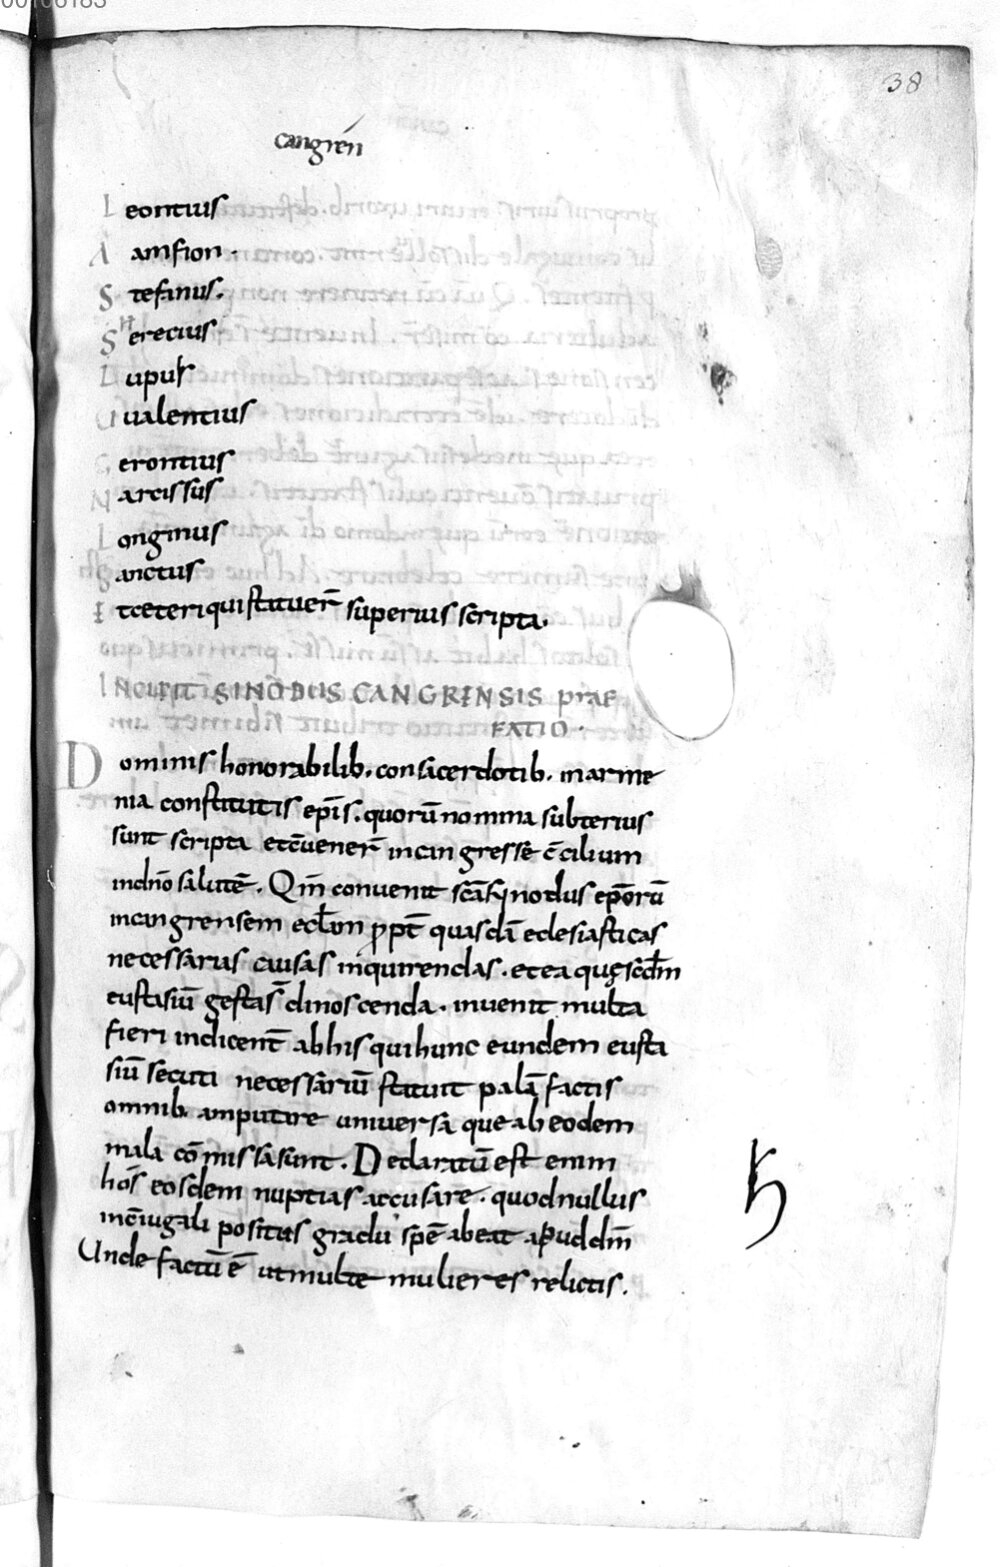 38
cangreń
Leontius
Aamfion.
Stefanus.
Sherecius
Lupus
Uualentius
Gerontius
Narcissus
Longinus
Sanctus
Et ceteri qui stituer̄ superius scripta.
INCIPIT SINODUS CANGRENSIS prae
FATIO.
Dominis honorabilib. consacerdotib. in arme
nia constitutis ep̄is. quorū nomina subterius
sunt scripta et c̄uener̄ in cangressē c̄cilium
in dn̄o salutē. Qm̄ convenit sc̄a synodus ep̄orū
in cangrensem
necessarias causas inquirendas. et ea quę scdm̄
eustasiū gesta s̄ dinoscenda. invenit multa
fieri indicent̄ ab his qui hunc eundem eusta
siū secuti necessariū statuit palā factis
omnib. amputare universa que ab eodem
mala cōmissa sunt. Declaratū est enim
hos eosdem nuptias accusare. quod nullus
in c̄iugali positus gradu spē abeat apud dm̄
Unde factū ē ut multe mulieres relictis.